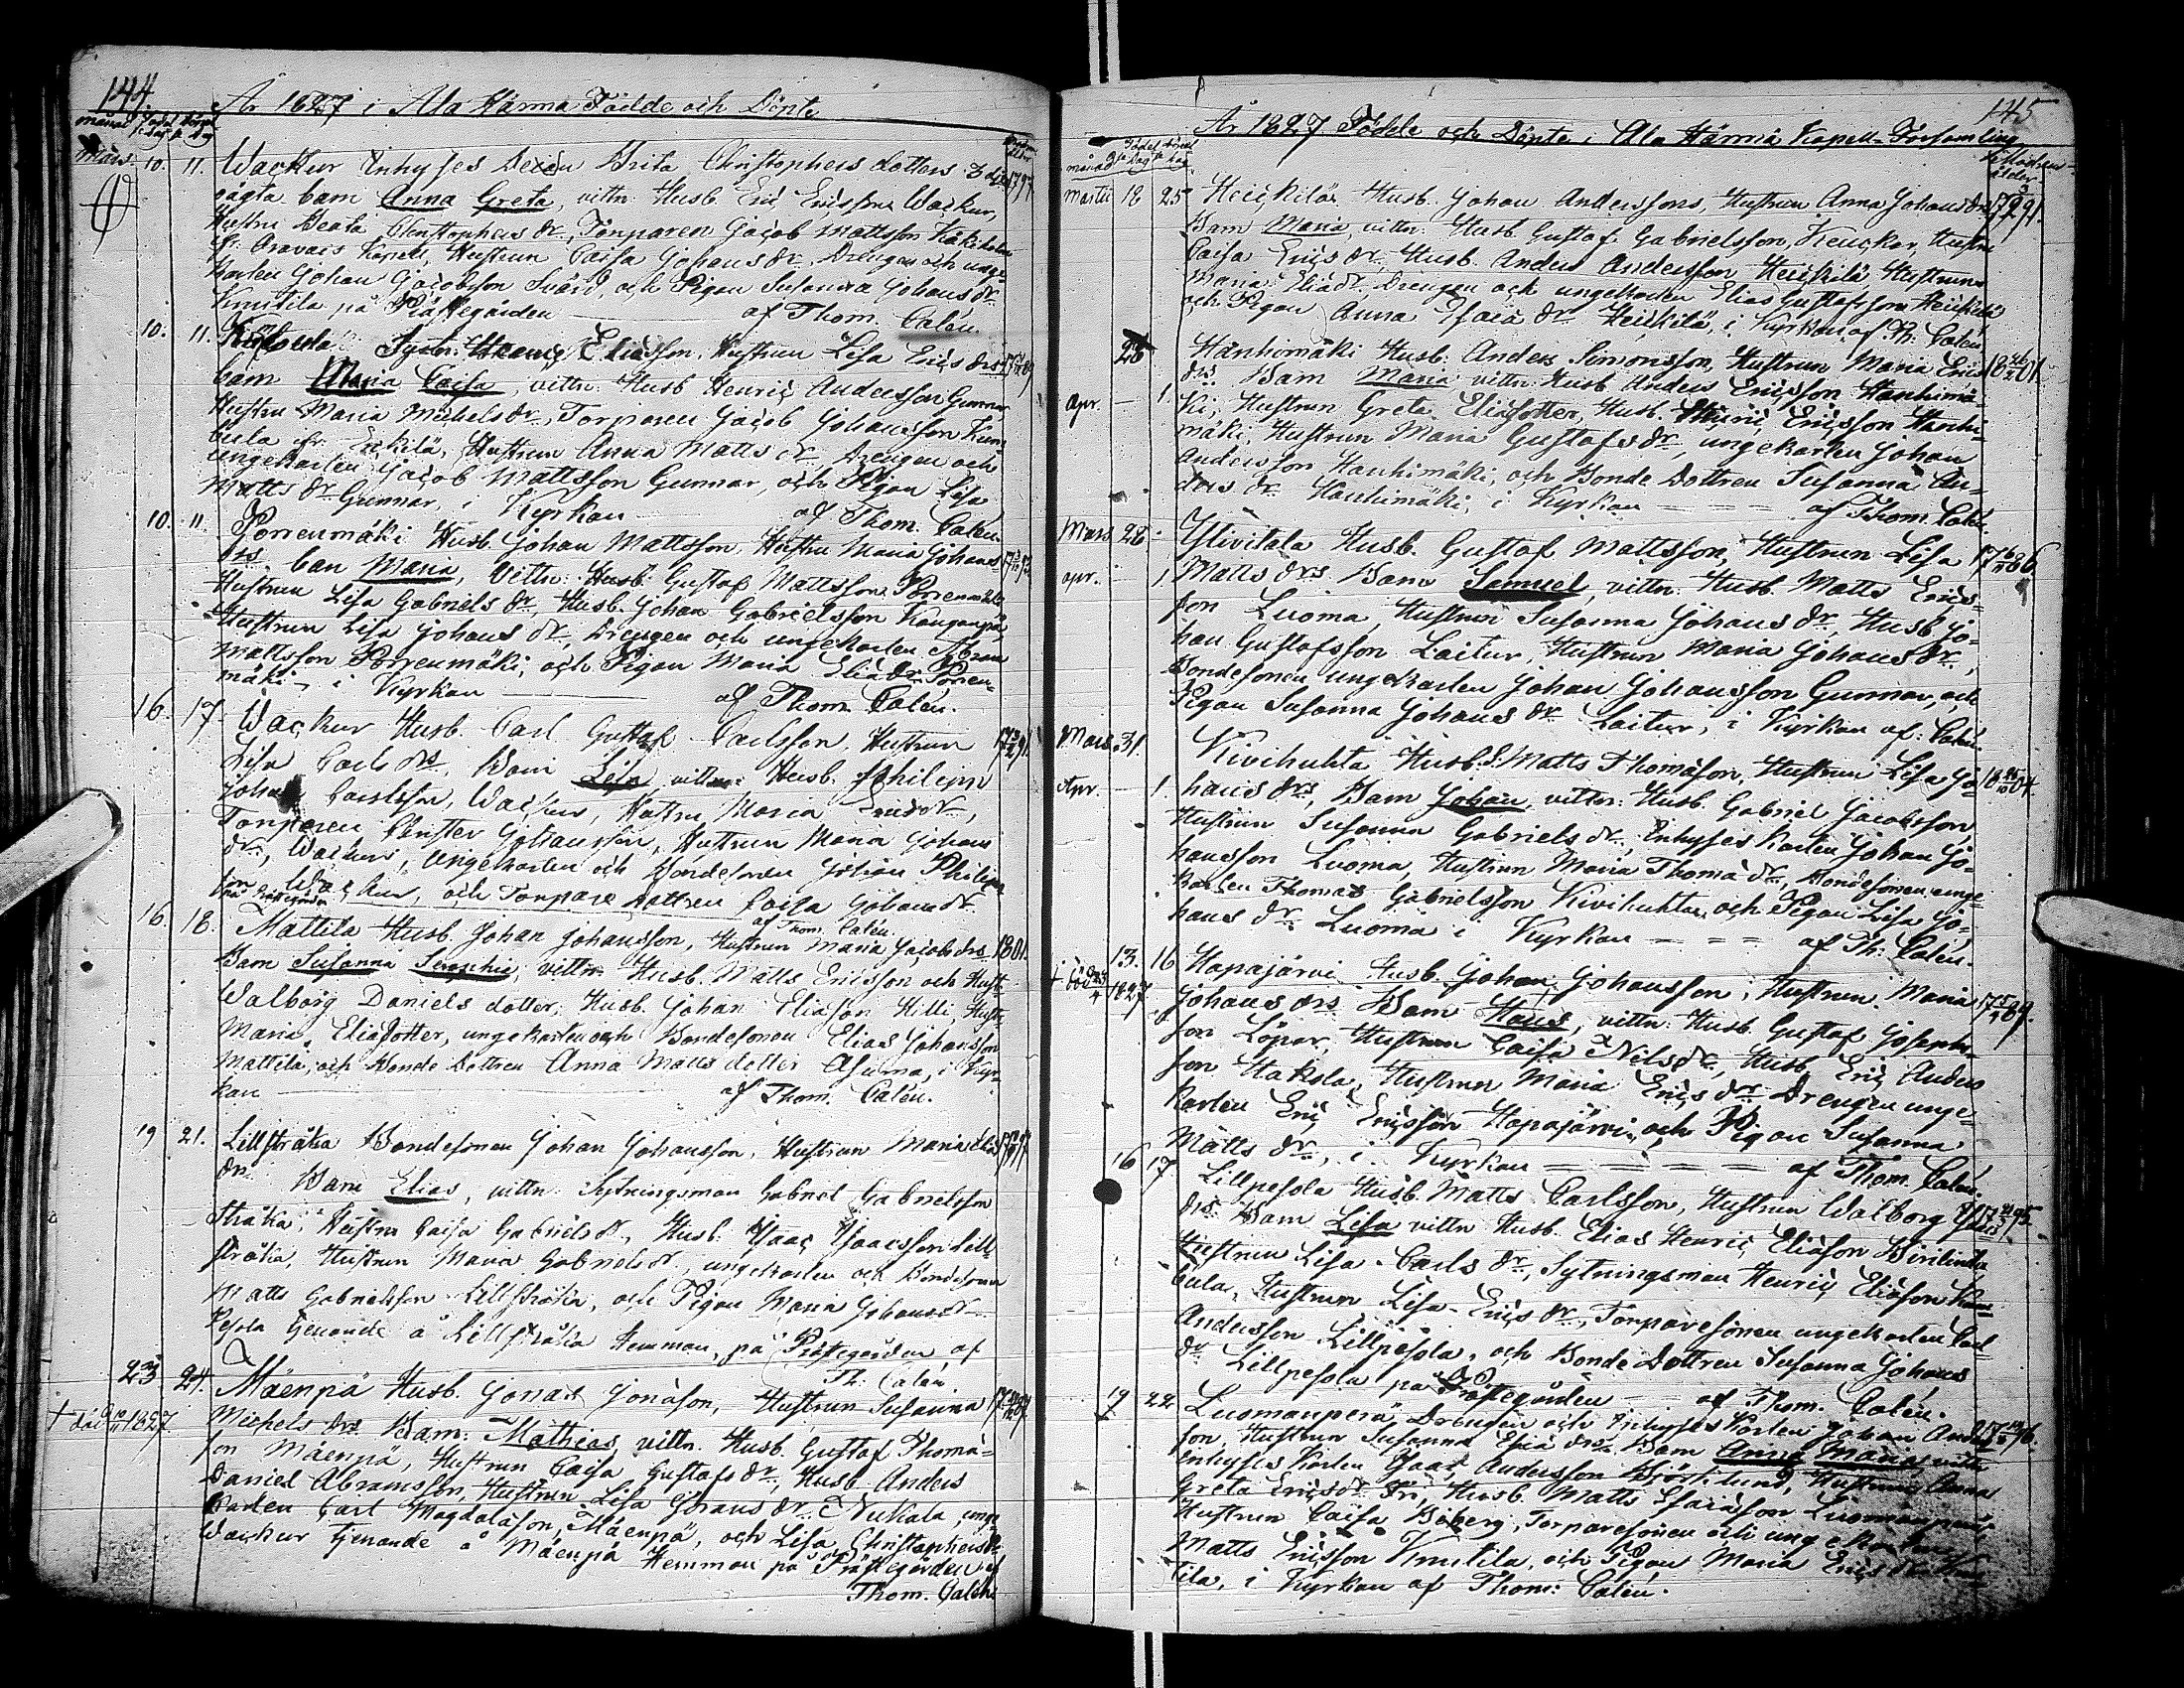 144.
År 1827 i Ala Härmä Födde och Döpte
månad
Mars 10. 11. Wackur Inhyses Brita Christophers dotters 1797
barn Anna Greta, vittn: Husb. Eric Ericsson Wackur,
Hustru Beata Christophers dr, Torparen Jacob Mattsson
fr: Oravais Kapell, Hustrun Caisa Johans dr, Drengen och unge-
karlen Johan Jacobsson Svärd, och Pigan Susanna Johans dr
Knutila på Prästegården af Thom. Calén.
10. 11. Sytn. Henric Eliasson, Hustrun Lisa Erics drs
barn Maria Caisa, vittn: Husb Henric Andersson Gunnar
Hustru Maria Michels dr, Torparen Jacob Johansson
fr: Hustrun Anna Matts dr, Drengen och
ungekarlen Jacob Mattsson Gunnar, och Pigan Lisa
Matts dr Gunnar, i Kyrkan af Thom. Calen.
10. 11. Porrenmäki Husb. Johan Mattsson, Hustru Maria Johans
drs barn Maria, Vittn: Husb: Gustaf Mattsson Porrenmäki
Hustrun Lisa Gabriels dr, Husb. Johan Gabrielsson Kanganpä
Hustrun Lisa Johans dr, Drengen och ungekarlen Abram
Mattsson Porrenmäki, och Pigan Maria Elia dr Porren-
mäki, i Kyrkan af Thom Calén.
16. 17. Wackur Husb. Carl Gustaf Carlsson, Hustrun
Lisa Carls drs, Barn Lisa vittn: Husb. Philip
Johan Carlsson, Wackur, Hustru Maria
Torparen Christer Johansson, Hustrun Maria Johans
dr, Wackur, Ungekarlen och Bondesonen Johan Philips
son Wackur, och Torpare dottren Caisa Johans dr
på Prästegården af Thom. Calén.
16. 18. Mattila Husb. Johan Johansson, Hustrun Maria Jacobs drs 1801.
Barn Susanna Sophia, vittn: Husb. Matts Ericsson och Hust-
Walborg Daniels dotter, Husb. Johan Eliasson Hilli, Hustr-
Maria Eliasdotter, ungekarlen och Bondesonen Elias Johansson
Mattila, och Bonde Dottren Anna Matts dotter i Kyr-
kan af Thom. Calén.
19 21. Lillstråka Bondesonen Johan Johansson, Hustrun Maria Elia
dr: Barn Elias, vittn: Sytningsman Gabriel Gabrielsson
stråka, Hustru Caisa Gabriels dr, Husb. Isaac Isaacsson Lill
stråka, Hustrun Maria Gabriels dr, ungekarlen och Bondesonen
Matts Gabrielsson Lillstråka, och Pigan Maria Johans dr
Pesola tjenande å Lillstråka Hemman, på Prästegården af
Th: Calén.
23 24. Mäenpä Husb. Jonas Jonasson, Hustrun Susanna
† död 1827. Michels drs Barn: Mathias, vittn. Husb. Gustaf Thomas-
son Mäenpä, Hustrun Caisa Gustafs dr, Husb. Anders
Daniel Abramsson, Hustrun Lisa Johans dr. Nukala unge
karlen Carl Magdalason, Mäenpä, och Lisa Christophers dr
Wackur tjenande å Mäenpä Hemman på Prästegården af
Thom. Calén
145
År 1827 Födde och Döpte i Ala Härmä Kapell-Församling
månad
Martii 18 25 Heickilä Husb. Johan Anderssons, Hustrun Anna Johans drs 1791.
Barn Maria, vittn: Husb Gustaf Gabrielsson, Keuckar, Hustru
Caisa Erics dr, Husb. Anders Andersson Heickilä, Hustrun
Maria Elia dr, Drengen och ungekarlen Elias Gustafsson Heickilä
och Pigan Anna Esaia dr Heickilä, i Kyrkan af Th: Calen
26 Hanhimäki Husb: Anders Simonsson, Hustrun Maria Erics 1801.
Apr. — 1. drs Barn Maria vittn: Husb Anders Ericsson Hanhimä-
ki, Hustrun Greta Eliasdotter, Husb. Henric Ericsson Hanhi-
mäki, Hustrun Maria Gustafs dr, ungekarlen Johan
Andersson Hanhimäki, och Bonde Dottren Susanna An-
ders dr Hanhimäki, i Kyrkan af Thom. Calén.
Mars 28. Ylivitala Husb. Gustaf Mattsson, Hustrun Lisa 1786
apr. — 1. Matts drs Barn Samuel, vittn: Husb. Matts Erics-
son Luoma, Hustrun Susanna Johans dr, Husb Jo-
han Gustafsson Laitur, Hustrun Maria Johans dr,
Bondesonen ungekarlen Johan Johansson Gunnar, och
Pigan Susanna Johans dr Laitur, i Kyrkan af: Calén.
Mars 31. Kivihuhta Husb. Matts Thomasson, Hustrun Lisa Jo- 1804.
Apr. — 1 hans drs, Barn Johan, vittn: Husb. Gabriel Jacobsson,
Hustrun Susanna Gabriels dr, Inhyses Karlen Johan Jo-
hansson Luoma, Hustrun Maria Thoma dr, Bondesonen unge-
karlen Thomas Gabrielsson Kivihuhta, och Pigan Lisa Jo-
hans dr Luoma i Kyrkan af Th: Calén.
13. 16 Hapajärvi Husb. Johan Johansson, Hustrun Maria 1789.
† död 1827 Johans drs Barn Hans, vittn: Husb Gustaf Josephs-
son Löpar, Hustrun Caisa Nils dr, Husb. Eric Anders
son Hakola, Hustrun Maria Erics dr Drengen unge-
karlen Eric Ericsson Hapajärvi, och Pigan Susanna
Matts dr, i Kyrkan af Thom. Calén.
16 17 Lillpesola Husb. Matts Carlsson, Hustrun Walborg 1795
drs Barn Lisa vittn Husb. Elias Henric Eliasson
Hustrun Lisa Carls dr, Sytningsman Henric Eliasson
Hustrun Lisa Erics dr, Torparesonen ungekarlen Carl
Andersson Lillpesola, och Bonde Dottren Susanna Johans
dr Lillpesola på Prästegården af Thom. Calén.
19 22 Luomanperä, Drengen och Inhyses Karlen Johan Anders 1796.
son Hustrun Susanna Esia drs Barn Anna Maria, vittn
Inhyses Karlen Isaac Andersson Björklund, Hustrun Anna
Greta Erics dr Fri, Husb. Matts Esaiasson Luomanperä
Hustrun Caisa Boberg, Torparesonen och ungekarlen
Matts Ericsson Knutila, och Pigan Maria Erics dr Knu-
tila, i Kyrkan af Thom: Calén.